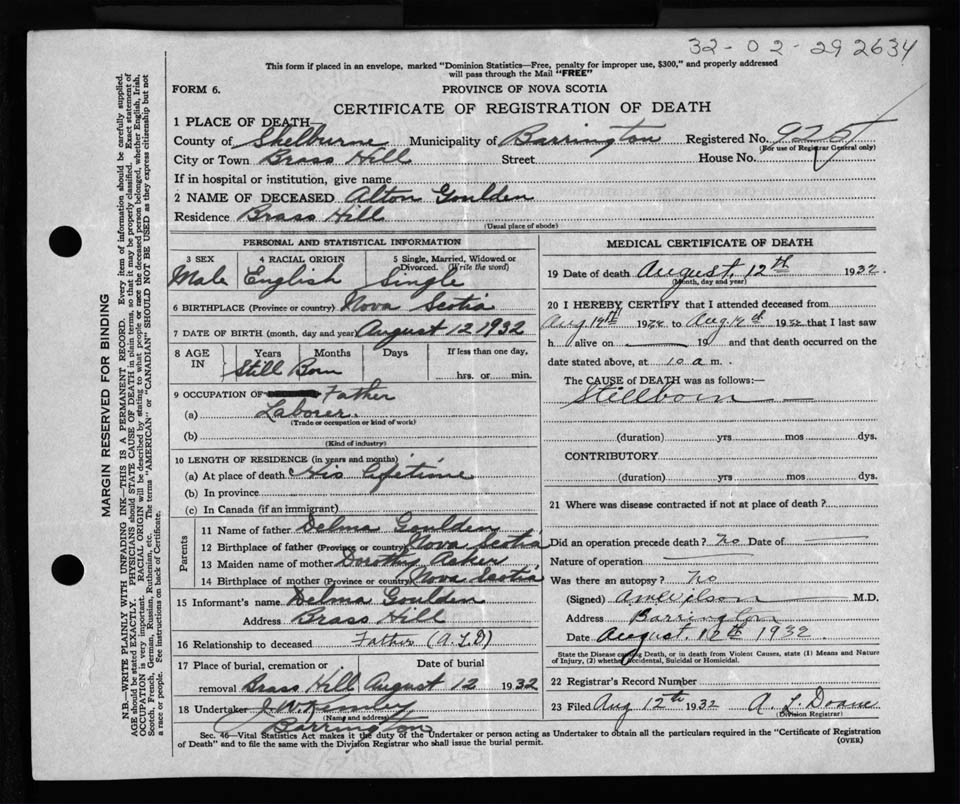 32-02-292634
This form if placed in an envelope, marked "Dominion Statistics—Free, penalty for improper use, $300," and properly addressed
will pass through the Mail "FREE"
FORM 6.
PROVINCE OF NOVA SCOTIA
CERTIFICATE OF REGISTRATION OF DEATH
1 PLACE OF DEATH—
County of Shelburne Municipality of Barrington Registered No. 925
(For use of Registrar General only)
City or Town Brass Hill Street House No.
If in hospital or institution, give name
2 NAME OF DECEASED Alton Goulden
Residence Brass Hill
(Usual place of abode)
MARGIN RESERVED FOR BINDING
N.B.—WRITE PLAINLY WITH UNFADING INK—THIS IS A PERMANENT RECORD. Every item of information should be carefully supplied.
AGE should be stated EXACTLY. PHYSICIANS should STATE CAUSE OF DEATH in plain terms, so that it may be properly classified. Exact statement of
OCCUPATION is very important. RACIAL ORIGIN will be described by stating to what people or race the deceased person belonged, whether English, Irish,
Scotch, French, German, Russian, Ruthenian, etc. The terms "AMERICAN" or "CANADIAN" SHOULD NOT BE USED as they express citizenship but not
a race or people. See instructions on back of Certificate.
PERSONAL AND STATISTICAL INFORMATION
3 SEX 4 RACIAL ORIGIN 5 Single, Married, Widowed or
Divorced. (Write the word)
Male English Single
6 BIRTHPLACE (Province or country) Nova Scotia
7 DATE OF BIRTH (month, day and year) August 12 1932
8 AGE IN Years Months Days If less than one day,
Still Born hrs. or min.
9 OCCUPATION OF Father
(a) Laborer.
(Trade or occupation or kind of work)
(b)
(Kind of industry)
10 LENGTH OF RESIDENCE (in years and months)
(a) At place of death His lifetime
(b) In province
(c) In Canada (if an immigrant)
Parents
11 Name of father Delma Goulden
12 Birthplace of father (Province or country) Nova Scotia
13 Maiden name of mother Dorothy
14 Birthplace of mother (Province or country) Nova Scotia
15 Informant's name Delma Goulden
Address Brass Hill
16 Relationship to deceased Father (A.L.D)
17 Place of burial, cremation or Date of burial
removal Brass Hill August 12 1932
18 Undertaker J. W.
(Name and address)
Barrington
MEDICAL CERTIFICATE OF DEATH
19 Date of death August, 12th 1932.
(Month, day and year)
20 I HEREBY CERTIFY that I attended deceased from
Aug 12th 1932 to Aug 12th 1932 that I last saw
h alive on 19 and that death occurred on the
date stated above, at 10 a m.
The CAUSE of DEATH was as follows:—
Stillborn
(duration) yrs mos dys.
CONTRIBUTORY
(duration) yrs mos dys.
21 Where was disease contracted if not at place of death?
Did an operation precede death? No Date of
Nature of operation
Was there an autopsy? No
(Signed) Wilson M.D.
Address Barrington
Date August. 12th 1932.
State the Disease causing Death, or in death from Violent Causes, state (1) Means and Nature
of Injury, (2) whether Accidental, Suicidal or Homicidal.
22 Registrar's Record Number
23 Filed Aug 12th 1932 A. L. Doane
(Division Registrar)
Sec. 46—Vital Statistics Act makes it the duty of the Undertaker or person acting as Undertaker to obtain all the particulars required in the "Certificate of Registration
of Death" and to file the same with the Division Registrar who shall issue the burial permit.
(OVER)